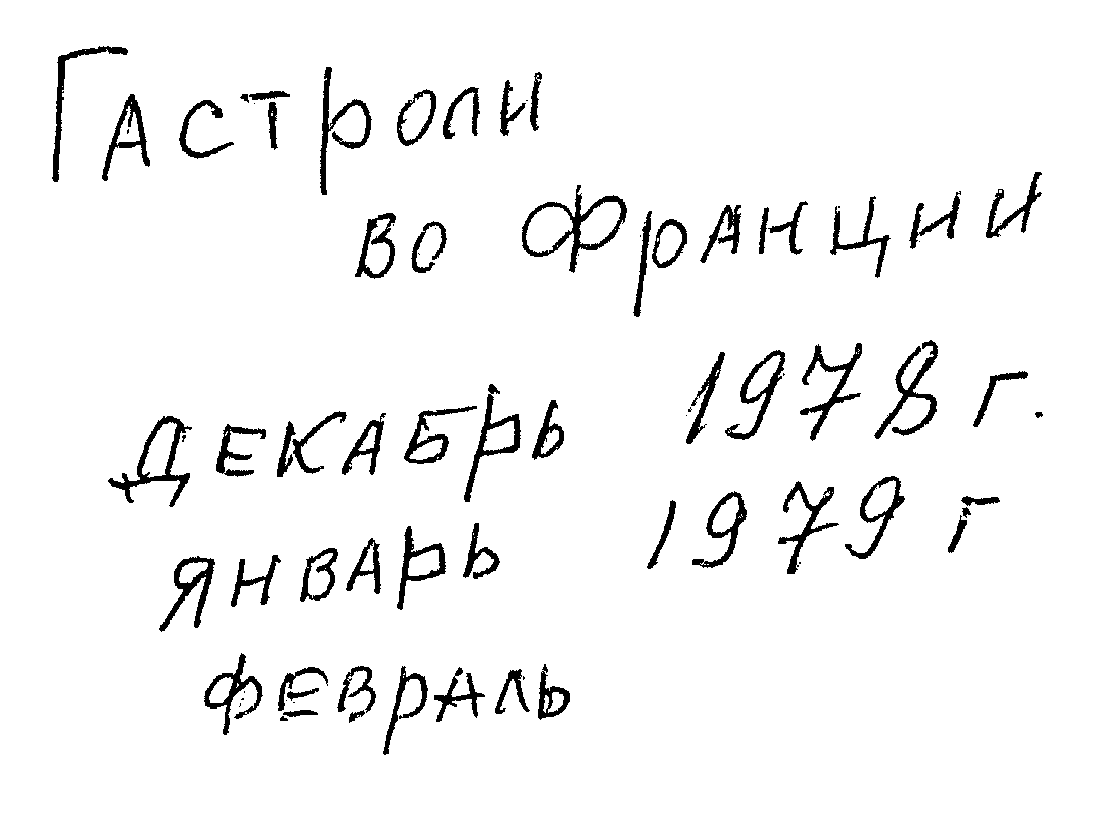 Гастроли
во Франции
декабрь 1978 г.
январь 1979 г
февраль